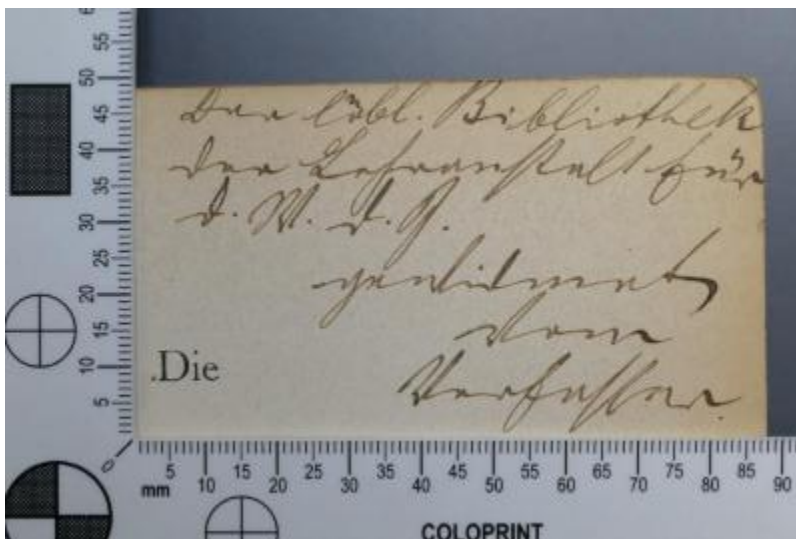 Der löbl. Bibliothek
der Lehranstalt für
d. W. d. J.
gewidmet
vom
Verfasser.
.Die
60
55
50
45
40
35
30
25
20
15
10
5
0
mm
5 10 15 20 25 30 35 40 45 50 55 60 65 70 75 80 85 90
COLOPRINT